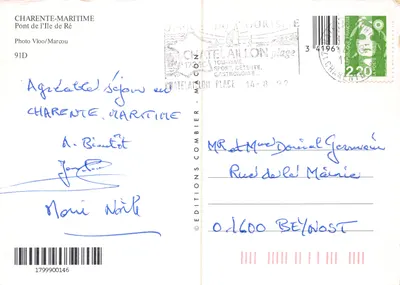 CHARENTE-MARITIME
Pont de l'Ile de Ré
Photo Viso/Marcou
91D
Agréable séjour en
CHARENTE MARITIME
A. Bientôt
© EDITIONS COMBIER - MACON
CHATELAILLON plage
3 41961
2,20
Mr et Mme Daniel Germain
Rue de la Mairie
01600 BEYNOST
1799900146